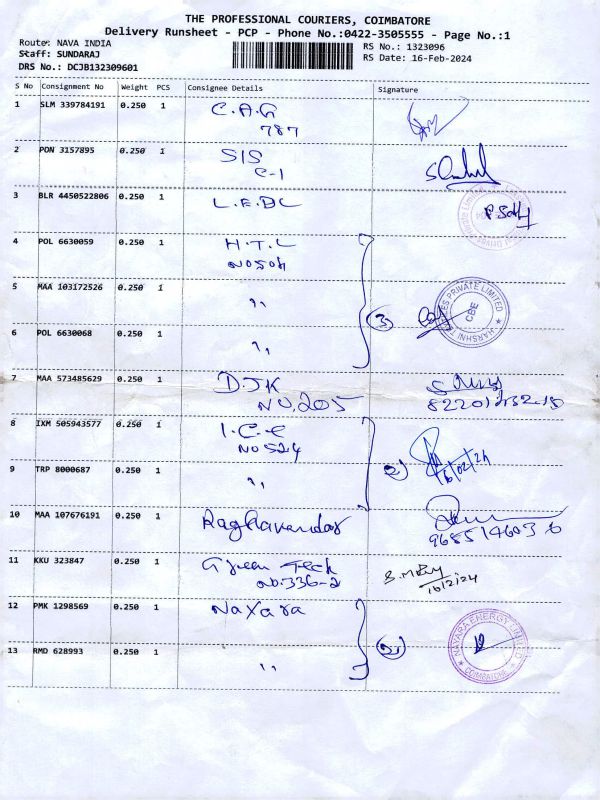 THE PROFESSIONAL COURIERS, COIMBATORE
Delivery Runsheet - PCP - Phone No.:0422-3505555 - Page No.:1
Route: NAVA INDIA
Staff: SUNDARAJ
DRS No.: DCJB132309601
RS No.: 1323096
RS Date: 16-Feb-2024
S No Consignment No Weight PCS Consignee Details Signature
1 SLM 339784191 0.250 1 C.A.G
787
2 PON 3157895 0.250 1 SIS
C-1
3 BLR 4450522806 0.250 1 L.E.D.L
4 POL 6630059 0.250 1 H.T.L
NO504
5 MAA 103172526 0.250 1 ,, 3
HARSHNI PRIVATE LIMITED
CBE
6 POL 6630068 0.250 1 ,,
7 MAA 573485629 0.250 1 DJK
NO.205
8 IXM 505943577 0.250 1 I.C.E
NO524
9 TRP 8000687 0.250 1 ,, 2 16/02/24
10 MAA 107676191 0.250 1 Raghavendar
11 KKU 323847 0.250 1 Green Tech
NO.336-2
16/2/24
12 PMK 1298569 0.250 1 Nayara
NAYARA ENERGY LIMITED
COIMBATORE
13 RMD 628993 0.250 1 ,,